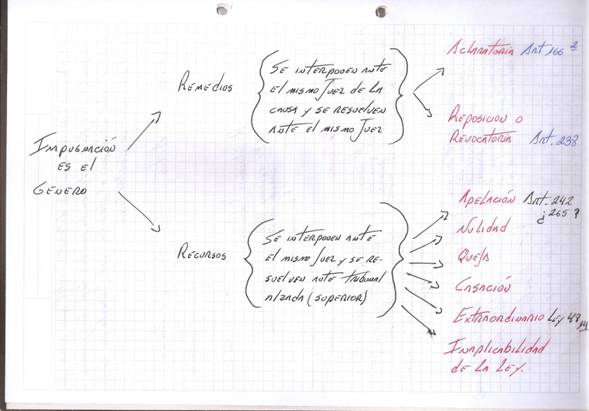 Impugnación
es el
Género
Remedios
Se interponen ante
el mismo Juez de la
causa y se resuelven
ante el mismo Juez
Aclaratoria Art 166 2
Reposicion o
Revocatoria Art. 238
Recursos
Se interponen ante
el mismo Juez y se re-
suelven ante tribunal
alzada (superior)
Apelación Art. 242
¿265?
Nulidad
Queja
Casación
Extraordinario Ley 48
Inaplicabilidad
de la Ley.